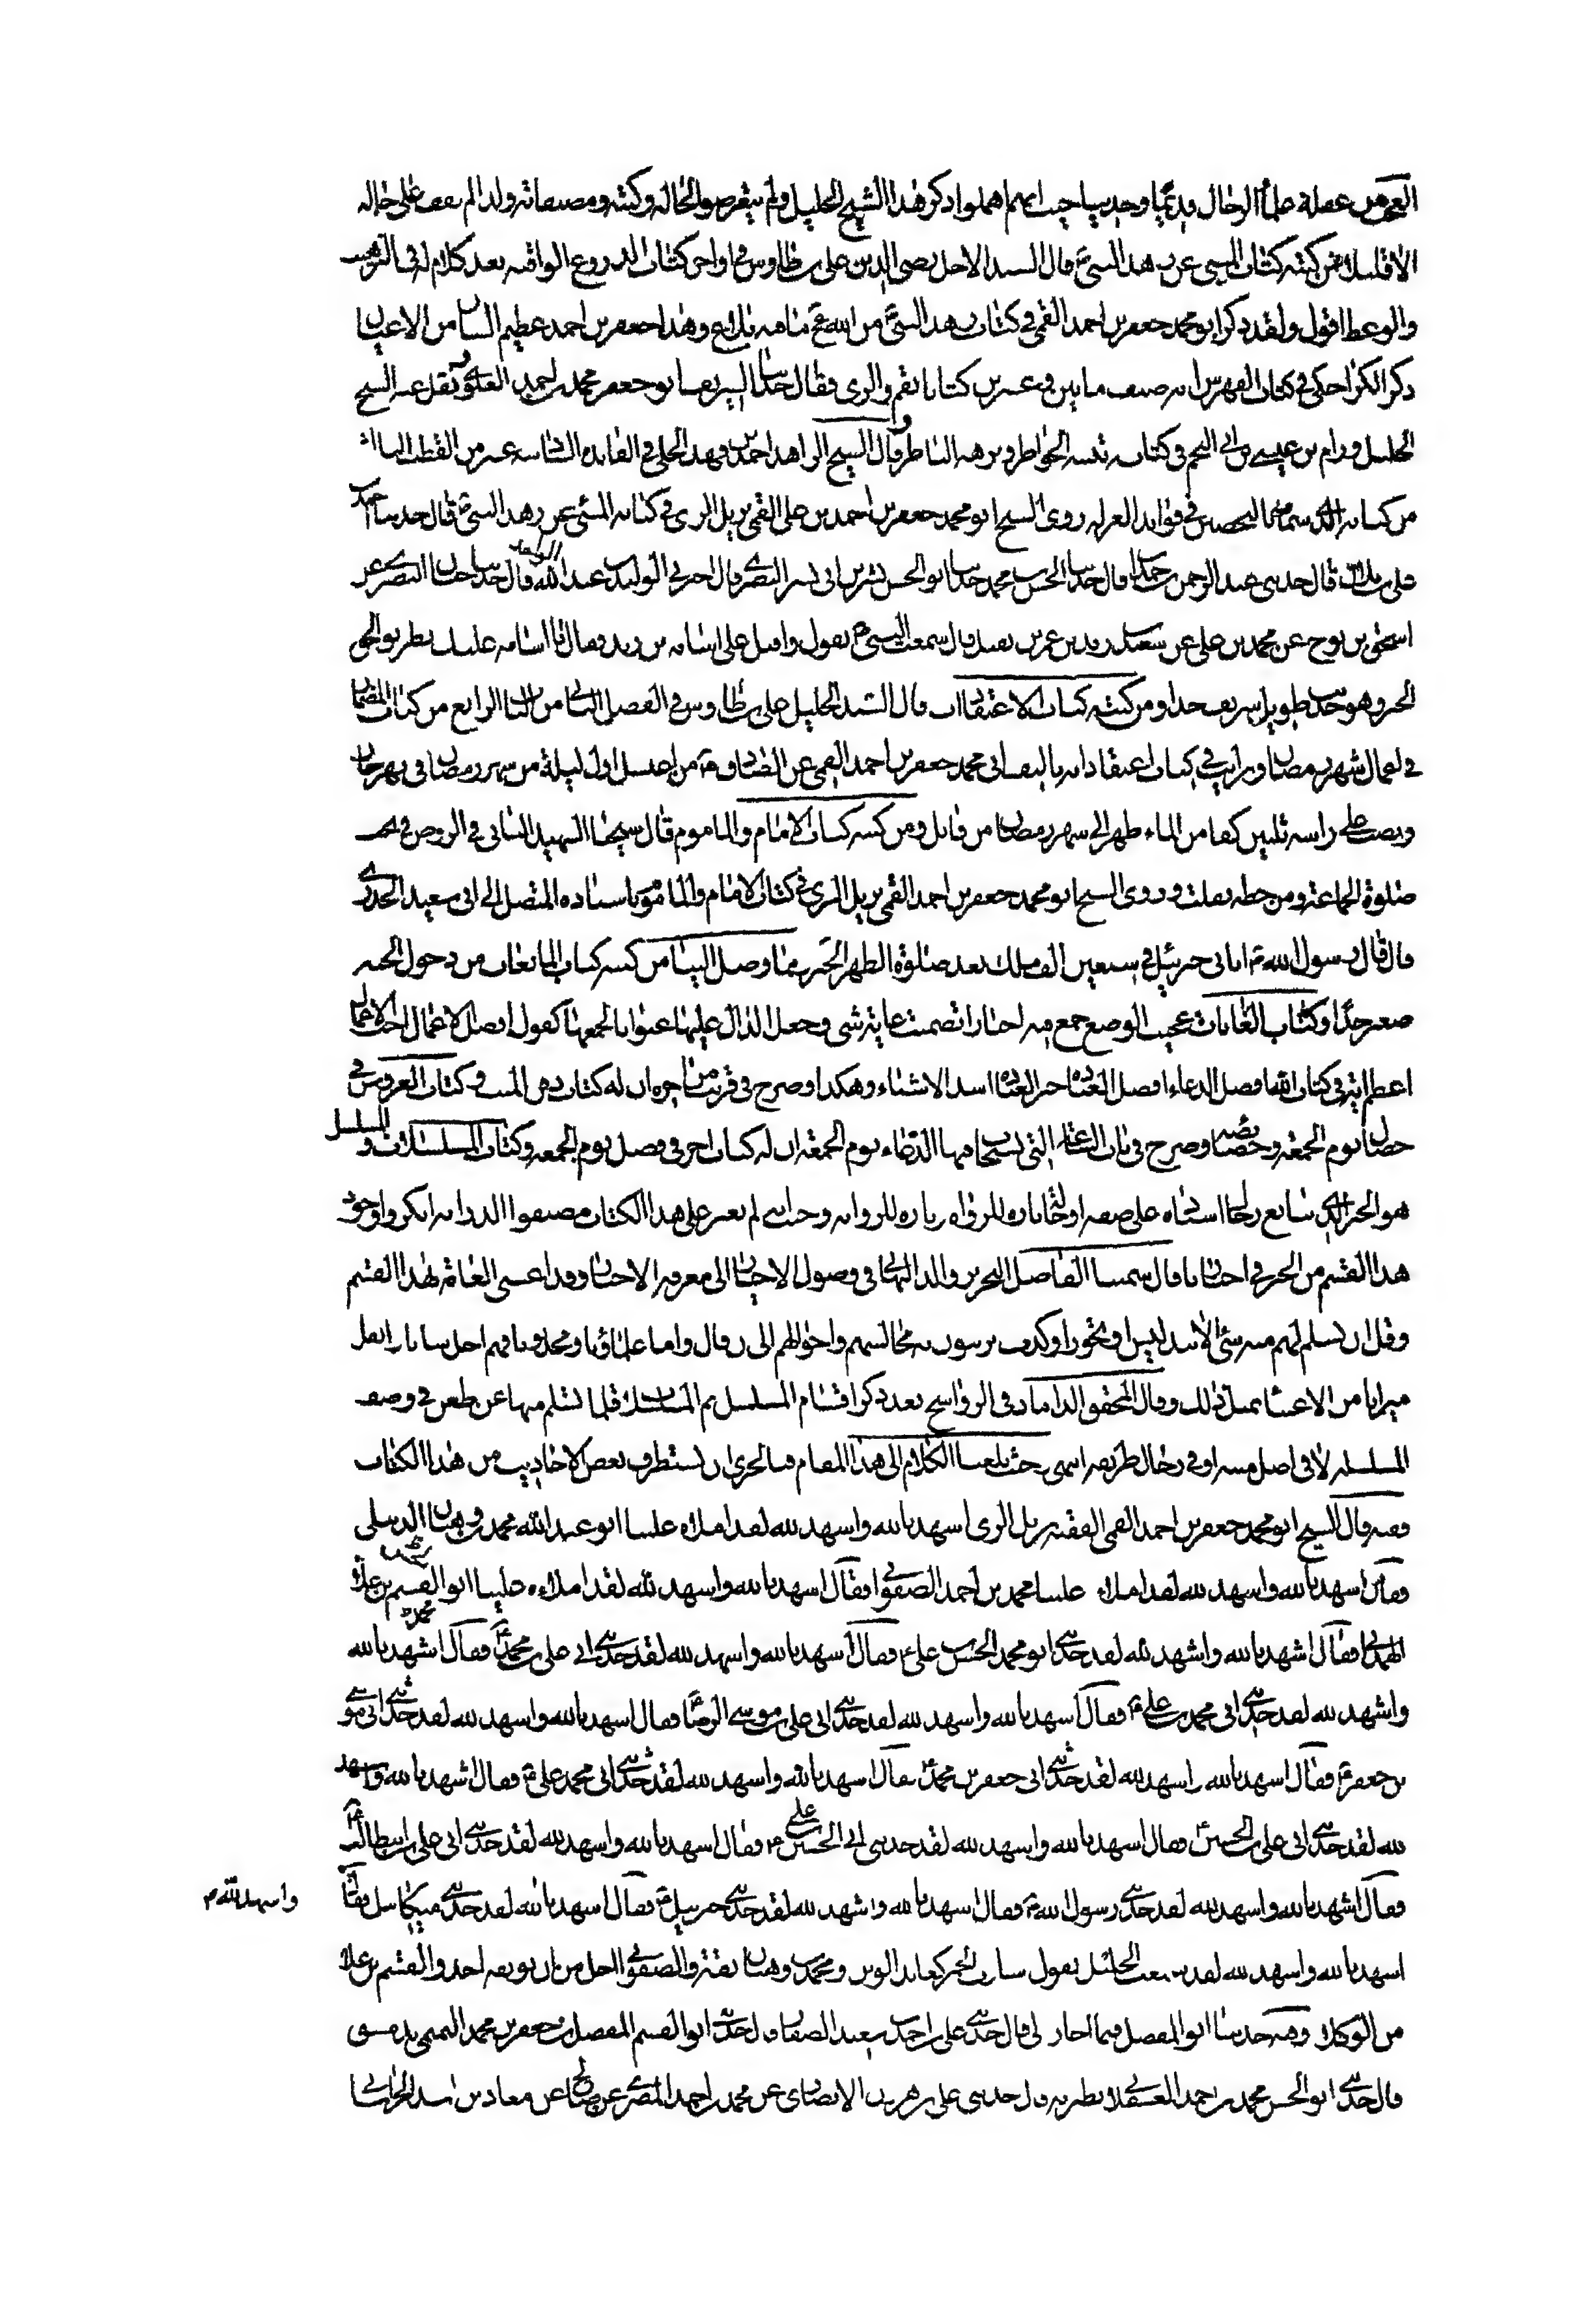 العجب من غفلة علماء الرجال قديما وحديثا حيث انهم اهملوا ذكر هذا الشيخ الجليل ولم يتعرضوا لحاله وكتبه ومصنفاته ولذا لم نقف على حاله
الا قليلا فمن كتبه كتاب المنبى عن زهد النبى ص قال السيد الاجل رضى الدين على بن طاوس فى اواخر كتاب الدروع الواقيه بعد كلام له فى الترهيب
والوعظ اقول ولقد ذكر ابو محمد جعفر بن احمد القمى فى كتاب زهد النبى ص من الله ع ما فيه بلاغ وهذا جعفر بن احمد عظيم الشان من الاعيان
ذكر الكراجكى فى كتاب الفهرس انه صنف مايتين وعشرين كتابا بقم والرى فقال حدثنا الشريف ابو جعفر محمد بن احمد العلوى ونقل عنه الشيخ
الجليل ورام بن عيسى بن ابى النجم فى كتاب تنبيه الخواطر ونزهه الناظر وقال الشيخ الزاهد احمد بن فهد الحلى فى الفايده الثامنه عشر من القطب الثالث
من كتابه الذى سماه التحصين فى فوايد العزله روى الشيخ ابو محمد جعفر بن احمد بن على القمى نزيل الرى فى كتابه المنبئ عن زهد النبى ص قال حدثنا احمد
على بن بلال قال حدثنى عبد الرحمن بن حمدان قال حدثنا الحسن بن محمد حدثنا ابو الحسن بشر بن ابى بشر البصرى قال اخبرنى الوليد بن عبد الواحد قال حدثنا حنان البصرى عن
اسحق بن نوح عن محمد بن على عن سعيد بن زيد بن عمرو بن نفيل قال سمعت النبى ص يقول واقبل على اسامه بن زيد فقال يا اسامه عليك بطريق الحق
الخبر وهو حديث طويل شريف جدا ومن كتبه كتاب الاعتقادات قال السيد الجليل على بن طاوس فى الفصل الثانى من الباب الرابع من كتاب المضمار
فى اعمال شهر رمضان ورايت فى كتاب اعتقد انه تاليف ابى محمد جعفر بن احمد القمى عن الصادق ع من اغتسل اول ليلة من شهر رمضان فى نهر جار
ويصب على راسه ثلثين كفا من الماء طهر الى شهر رمضان من قابل ومن كتبه كتاب الامام والماموم قال شيخنا الشهيد الثانى فى الروض فى بحث
صلوة الجماعة ومن خطه نقلت وروى الشيخ ابو محمد جعفر بن احمد القمى نزيل الرى فى كتاب الامام والماموم باسناده المتصل الى ابى سعيد الخدرى
قال قال رسول الله ص اتانى جبرئيل فى سبعين الف ملك بعد صلوة الظهر الخبر ومما وصل الينا من كتبه كتاب المانعات من دخول الجنه
صغير جدا وكتاب الغايات عجيب الوضع جمع فيه اخبارا تضمنت غاية شى وجعل الدال عليها عنوانا لجمعها كقول افضل الاعمال احب الاعمال
اعظم اية فى كتاب الله افضل الدعاء افضل العباده خير العباده اشد الاشياء وهكذا وصرح فى قريب من اخره ان له كتاب دفن الميت وكتاب العروس فى
خصال يوم الجمعة وخصايصه وصرح فى باب الساعات التى يستجاب فيها الدعاء يوم الجمعة ان له كتاب اخر فى فضل يوم الجمعه وكتاب المسلسلات والمسلسل
هو الخبر الذى تتابع رجال اسناده على صفه او حاله تاره للرواه وتاره للروايه وحيث لم يعثر على هذا الكتاب مصنفوا الدرايه انكروا وجود
هذا القسم من الخبر فى احاديثنا قال شمسنا الفاضل النحرير والد البهائى فى وصول الاخيار الى معرفه الاخبار وقد اعتنى العامة بهذا القسم
وقل ان يسلم لهم منه شئ الا بتدليس او تجوز او كذب يزينون به مجالسهم واحوالهم الى ان قال واما علماؤنا ومحدثونا فهم اجل شانا واثقل
ميزانا من الاعتناء بمثل ذلك وقال المحقق الداماد فى الرواشح بعد ذكر اقسام المسلسل ثم المسلسلات قلما تسلم منها عن طعن فى وصف
المسلسله لا فى اصل متنه او فى رجال طريقه انتهى وحيث بلغ بنا الكلام الى هذا المقام فبالحرى ان نستطرف بعض الاحاديث من هذا الكتاب
ففيه قال الشيخ ابو محمد جعفر بن احمد القمى الفقيه نزيل الرى اشهد بالله واشهد لله لقد املاه علينا ابو عبد الله محمد بن وهبان الدبيلى
فقال اشهد بالله واشهد لله لقد املاه علينا محمد بن احمد الصفوانى فقال اشهد بالله واشهد لله لقد املاءه علينا ابو القسم بن علا
الهمدانى فقال اشهد بالله واشهد لله لقد حدثنى ابو محمد الحسن بن على ع فقال اشهد بالله واشهد لله لقد حدثنى ابى على بن محمد ع فقال اشهد بالله
واشهد لله لقد حدثنى ابى محمد بن على ع فقال اشهد بالله واشهد لله لقد حدثنى ابى على بن موسى الرضا ع فقال اشهد بالله واشهد لله لقد حدثنى ابى موسى
بن جعفر ع فقال اشهد بالله واشهد لله لقد حدثنى ابى جعفر بن محمد ع فقال اشهد بالله واشهد لله لقد حدثنى ابى محمد بن على ع فقال اشهد بالله واشهد
لله لقد حدثنى ابى على بن الحسين ع فقال اشهد بالله واشهد لله لقد حدثنى ابى الحسين بن على ع فقال اشهد بالله واشهد لله لقد حدثنى ابى على بن ابيطالب ع
فقال اشهد بالله واشهد لله لقد حدثنى رسول الله ص فقال اشهد بالله واشهد لله لقد حدثنى جبرئيل ع فقال اشهد بالله لقد حدثنى ميكائيل فقال
واشهد لله م
اشهد بالله واشهد لله لقد سمعت الجليل يقول شارب الخمر كعابد الوثن ومحمد بن وهبان ثقة والصفوانى اجل من ان يوثقه احد والقسم بن علا
من الوكلاء وفيه حدثنا ابو المفضل فيما اجاز لى قال حدثنى على بن احمد بن سعيد الصفار قال حدثنا ابو القسم المفضل بن جعفر بن محمد التميمى بدمشق
قال حدثنى ابو الحسن محمد بن احمد العسقلانى بطبريه قال حدثنى على بن هرون الانصارى عن محمد بن احمد المصرى عن صالح عن معاذ بن اسد الخراسانى